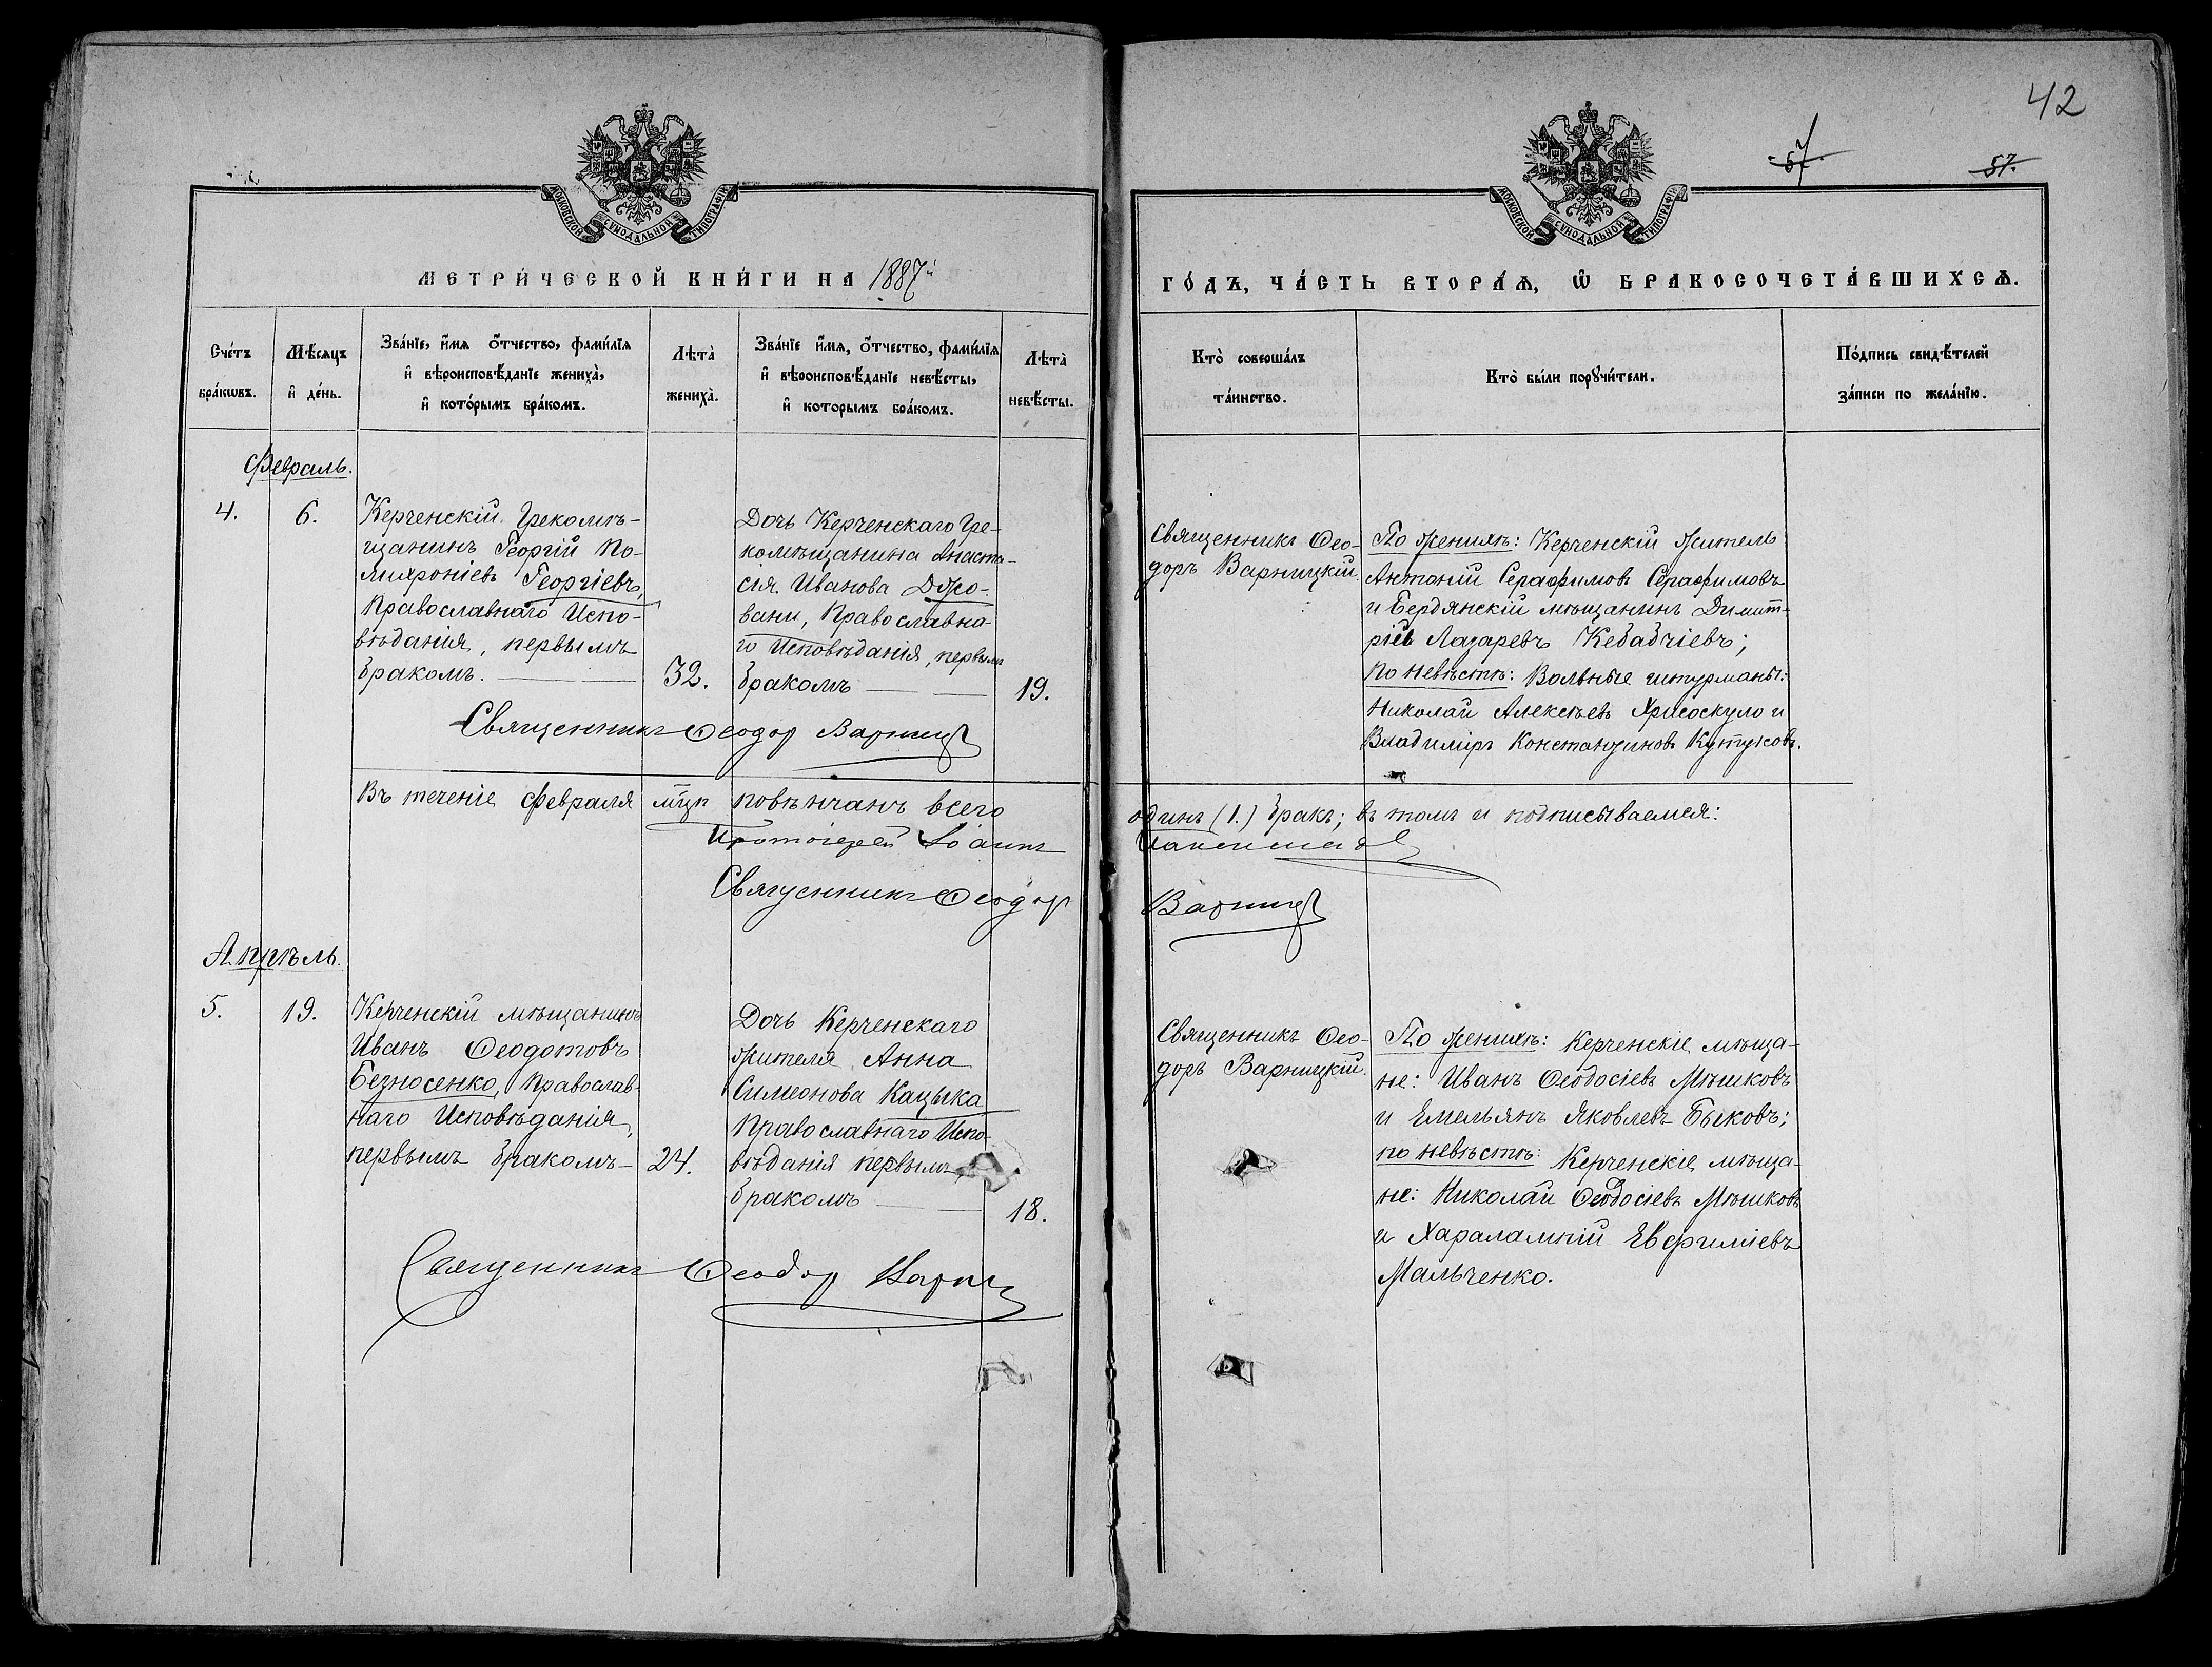 42
57.
57.
МОСКОВСКОЙ СѴНОДАЛЬНОЙ ТИПОГРАФІИ
МОСКОВСКОЙ СѴНОДАЛЬНОЙ ТИПОГРАФІИ
МЕТРИ́ЧЕСКОЙ КНИ́ГИ НА 1887й
ГО́ДЪ, ЧА́СТЬ ВТОРА́Ѧ, Ѽ БРАКОСОЧЕТА́ВШИХСѦ.
Сче́тъ
бра́кѡвъ.
Мѣ́сяцъ
и҆ де́нь.
Зва́нїе, и҆́мя ѻ҆́тчество, фами́лїя
и҆ вѣроисповѣ́данїе жениха̀,
и҆ кото́рымъ бра́комъ.
Лѣта̀
жениха̀.
Зва́нїе и҆́мя, ѻ҆́тчество, фами́лїя
и҆ вѣроисповѣ́данїе невѣ́сты,
и҆ которымъ бра́комъ.
Лѣта̀
невѣ́сты.
Кто̀ соверша́лъ
та́инство.
Кто̀ бы́ли порꙋчи́тели.
По́дпись свидѣ́телей
за́писи по жела́нїю.
Февраль.
4.
6.
Керченскій Грекомѣ-
щанинъ Георгій По-
лихроніевъ Георгіевъ,
Православнаго Испо-
вѣданія, первымъ
бракомъ.
32.
Дочь Керченскаго Гре-
комѣщанина Анаста-
сія Иванова Джо-
вани, Православна-
го Исповѣданія, первымъ
бракомъ
19.
Священникъ Ѳео-
доръ Варницкій.
По женихѣ: Керченскій житель
Антоній Серафимовъ Серафимовъ
и Бердянскій мѣщанинъ Димит-
рій Лазаревъ Кебабчіевъ;
по невѣстѣ: Вольные штурманы:
Николай Алексѣевъ Хрисоскуло и
Владиміръ Константиновъ Кутузовъ.
Священникъ Ѳеодор Варниц
Въ теченіе Февраля мѣцъ повѣнчанъ всего
одинъ (1.) бракъ; въ томъ и подписываемся:
Протоіерей Іоаннъ
Священникъ Ѳеодор Варниц
Апрѣль.
5.
19.
Керченскій мѣщанинъ
Иванъ Ѳеодотовъ
Безносенко, Православ-
наго Исповѣданія,
первымъ бракомъ
24.
Дочь Керченскаго
жителя Анна
Симеонова Кацыка
Православнаго Испо-
вѣданія первымъ
бракомъ
18.
Священникъ Ѳео-
доръ Варницкій.
По женихѣ: Керченскіе мѣща-
не: Иванъ Ѳеодосіевъ Мѣшковъ
и Емельянъ Яковлевъ Быковъ;
по невѣстѣ: Керченскіе мѣща-
не: Николай Ѳеодосіевъ Мѣшковъ
и Харалампій Евфиміевъ
Мальченко.
Священникъ Ѳеодор Варниц